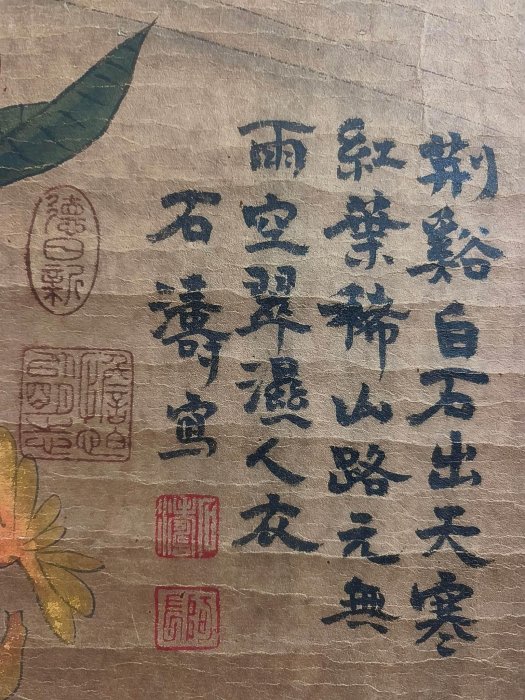 荆谿白石出天寒
紅葉稀山路元無
雨空翠濕人衣
石濤寫
德日新
阿長